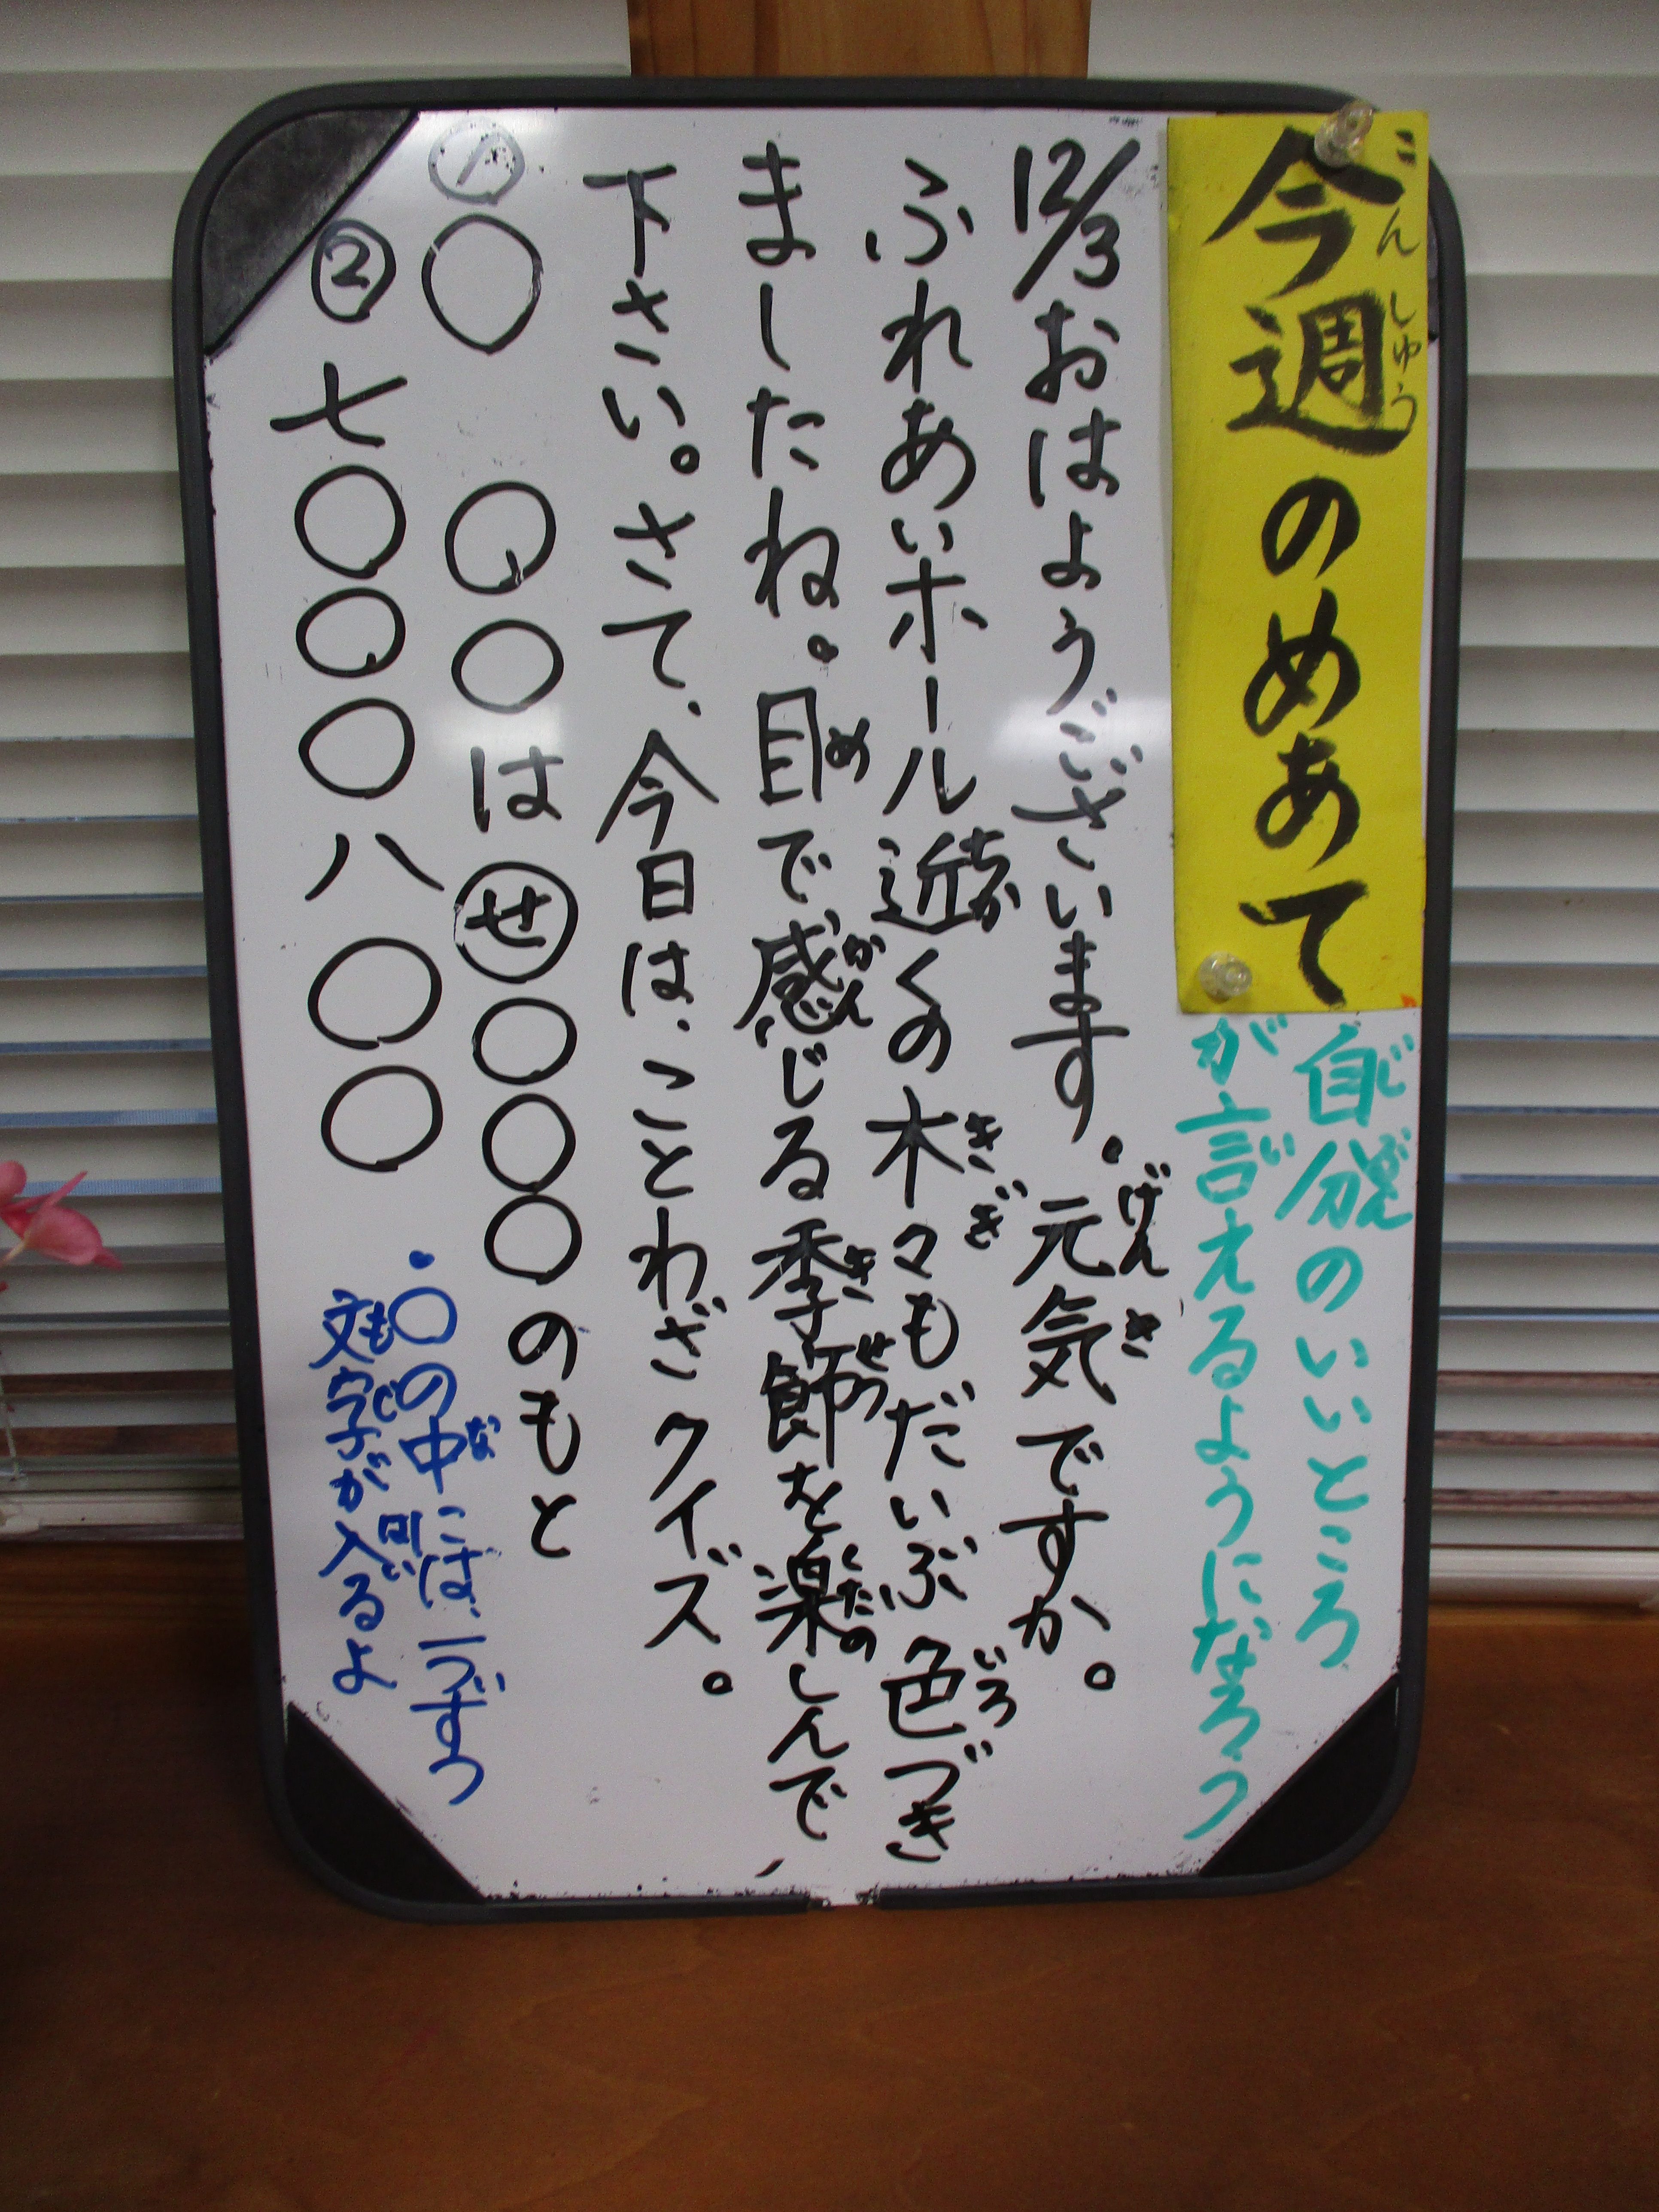 今週のめあて
自分のいいところ
が言えるようになろう
12/3おはようございます。元気ですか。
ふれあいホール近くの木々もだいぶ色づき
ましたね。目で感じる季節を楽しんで
下さい。さて、今日は、ことわざクイズ。
①○ ○○は㋝○○○のもと
②七○○○八○○
・○の中には、一つずつ
文字が入るよ